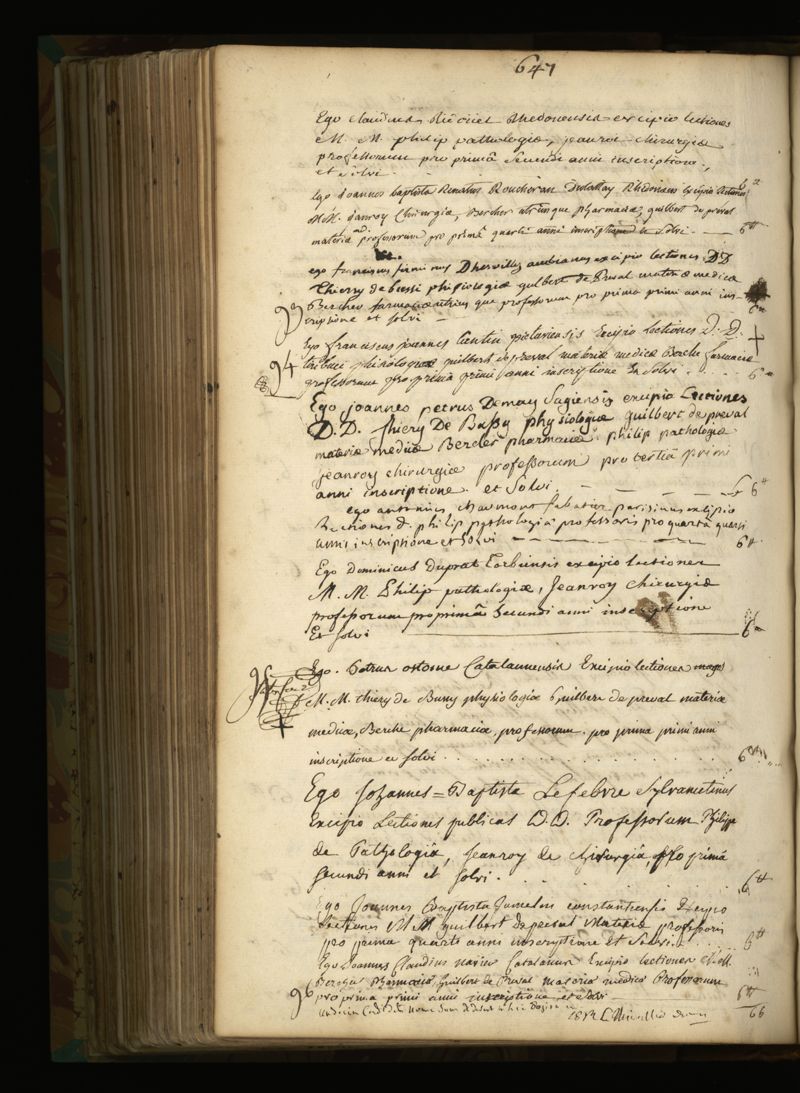 647
Ego claudius Rhedonensis excipio lectiones
M. M. philip pathologiæ, jeanroi chirurgiæ
professorum pro primâ secundi anni inscriptione,
et solvi
Ego Joannes baptista Renatus Rhedonensis excipio lectiones
M. M. Janroy Chirurgiæ, Bercher utriusque pharmaciæ, guilbert de préval
materiæ professorum pro primâ quarti anni inscriptione et solvi. 6tt
ego franciscus firminus Dhervillez ambianus excipio lectiones DD
Thierry de bussi phisiologiæ guilbert de Préval materiæ medicæ
93 Bercher farmaciæ utrius que professorum pro prima primi anni ins-
criptione et solvi
Ego franciscus joannes pictaviensis excipio lectiones D. D.
94 phisiologiæ guilbert de preval materiæ medicæ Berche farmaciæ
professorum pro prima primi anni inscriptione et solvi. 6
Ego joannes petrus Demay Sagiensis excipio Lectiones
D. D. thiery De Bussy physiologiæ guilbert de preval
materiæ medicæ Bercher pharmaciæ philip pathologiæ
jeanroy chirurgiæ professorum pro tertiâ primi
anni inscriptione et solvi 6tt
ego antonius chaumont parisinus excipio
Lectiones d. philip pathologiæ professoris pro quartâ quarti
anni inscriptione et solvi 6tt
Ego Dominicus Duprat Tarbiensis excipio lectiones
M. M. Philip pathologiæ, Jeanroy chirurgiæ
professorum pro primâ secundi anni inscriptione
Et solvi 6
95 Ego Petrus ostome Catalaunensis Excipio lectiones
M. M. thiery de Bussy physiologiæ Guilbert de preval materiæ
medicæ, Berche pharmaciæ, professorum. pro prima primi anni
inscriptione et solvi 6
Ego Johannes=Baptista Lefebvre Sylvanectinus
Excipio Lectiones publicas D.D. Professorum Philipp
de Pathologiâ, Jeanroy de chirurgiâ, pro primâ
secundi anni et solvi. 6tt
Ego Joannes Baptista constantiensis Excipio
Lectiones M M guilbert de preval Materiæ professoris
pro prima quarti anni inscriptione Et Solvi. 6tt
Ego Joannes Claudius Excipio lectiones M.M.
Bercher Pharmaciæ, Guilbert de Preval materiæ medicæ Professorum
96 pro prima primi anni inscriptione et solvi 6tt
66